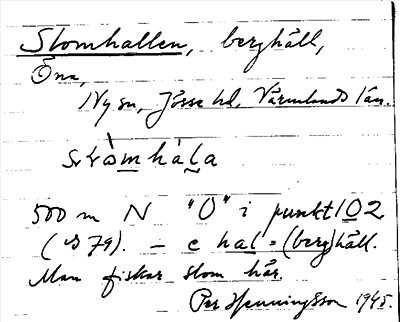 Slomhallen, berghäll,
Öna,
Ny sn, Jösse hd, Värmlands län.
500 m N "O" i punkt 102
(IS 79). – c hal = (berg)häll.
Man fiskar slom här.
Per Henningsson 1945.